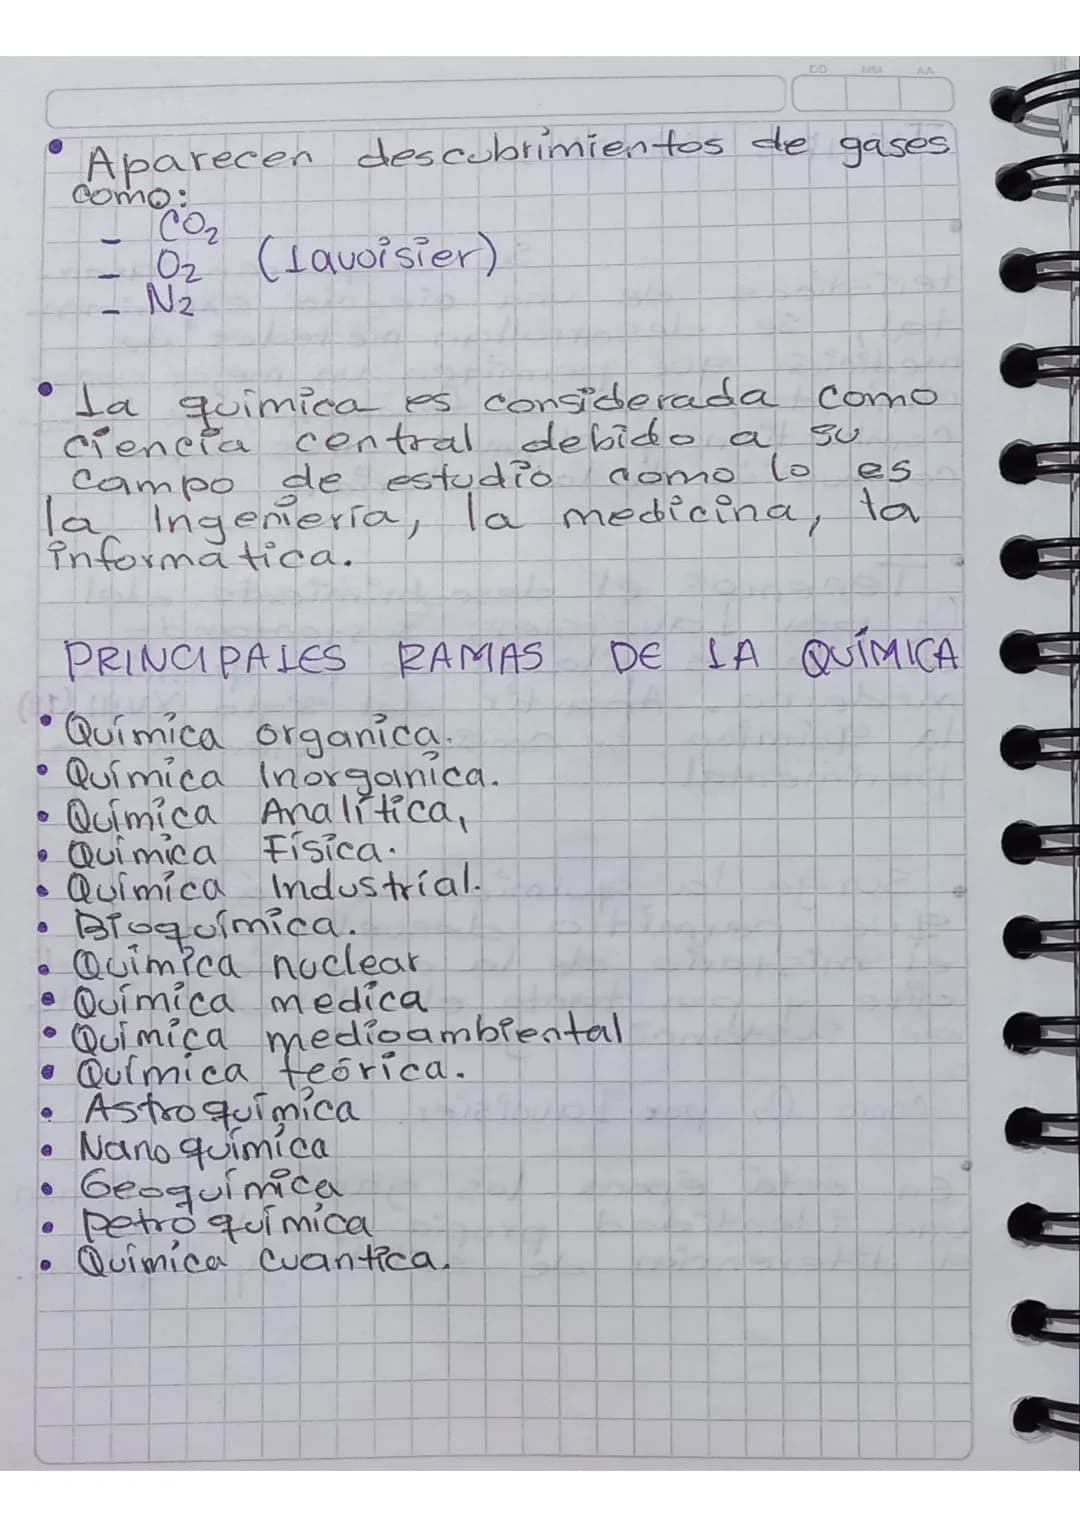 DD MM AA
• Aparecen descubrimientos de gases
como:
- CO₂
- O₂ (Lavoisier)
- N₂
• La química es considerada como
ciencia central debido a su
campo de estudio como lo es
la Ingeniería, la medicina, la
informatica.
PRINCIPALES RAMAS DE LA QUÍMICA
• Química organica.
• Química Inorganica.
• Química Analítica,
• Quimica Física.
• Química Industrial.
• Bioquímica.
• Química nuclear
• Química medica
• Química medioambiental
• Química teórica.
• Astroquímica
• Nanoquímica
• Geoquímica
• petroquímica
• Química Cuantica.